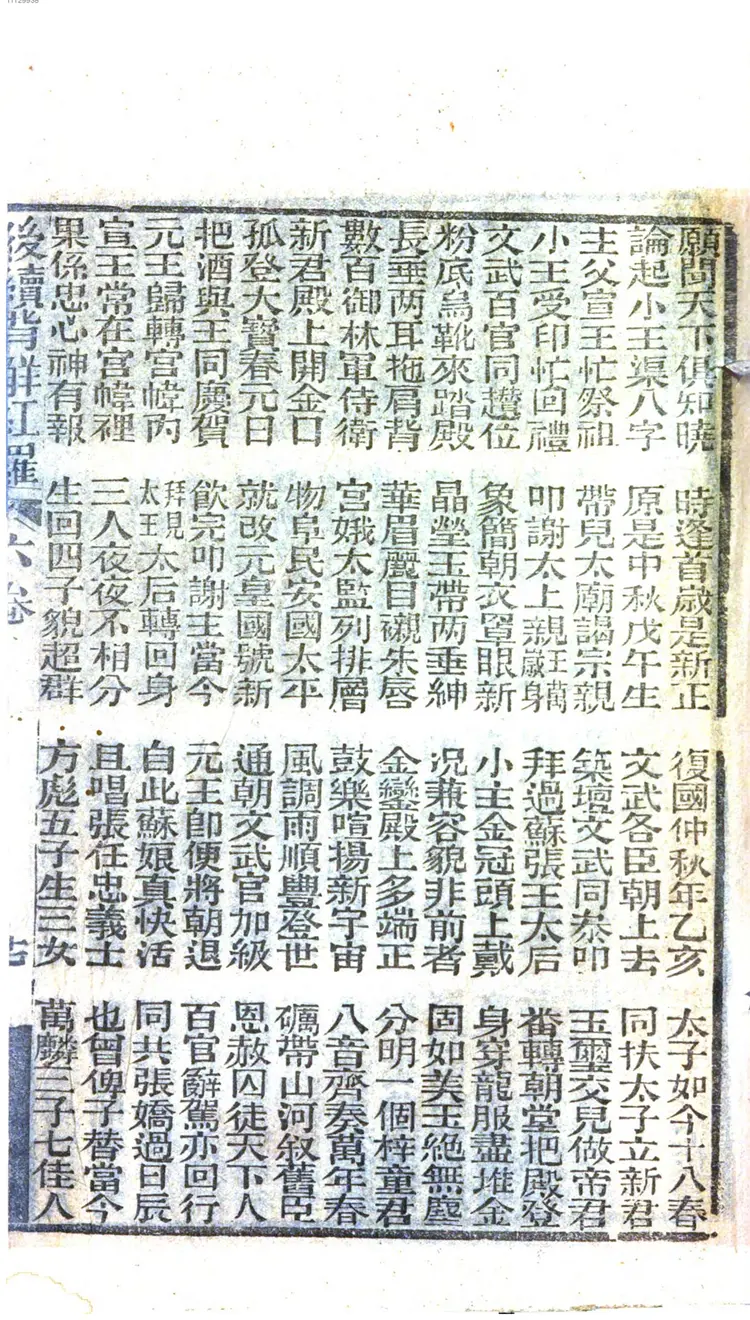 願問天下俱知曉 時逢首歲是新正 復國仲秋年乙亥 太子如今十八春
論起小王渠八字 原是中秋戊午生 文武各臣朝上去 同扶太子立新君
主父宣王忙祭祖 帶兒太廟謁宗親 築壇文武同叅叩 玉璽交兒做帝君
小王受印忙回禮 叩謝太上親王萬歲身 拜過蘇張王太后 番轉朝堂把殿登
文武百官同趲位 象簡朝衣罩眼新 小主金冠頭上戴 身穿龍服盡堆金
粉底烏靴來踏殿 晶瑩玉帶两垂紳 况兼容貌非前者 固如美玉絶無塵
長垂两耳拖肩背 華眉麗目襯朱唇 金鑾殿上多端正 分明一個梓童君
數百御林軍侍衛 宮娥太監列排層 鼓樂喧揚新宇宙 八音齊奏萬年春
新君殿上開金口 物阜民安國太平 風調雨順豐登世 礪帶山河叙舊臣
孤登大寳春元日 就改元皇國號新 通朝文武官加級 恩赦囚徒天下人
把酒與王同慶賀 飲完叩謝主當今 元王卽便將朝退 百官辭駕亦回行
元王歸轉宮幃內 拜見太王太后轉回身 自此蘇娘真快活 同共張嬌過日辰
宣王常在宮幃裡 三人夜夜不相分 且唱張任忠義士 也曾俾子替當今
果係忠心神有報 生回四子貌超群 方彪五子生三女 萬麟三子七佳人
後續背解紅羅 六卷